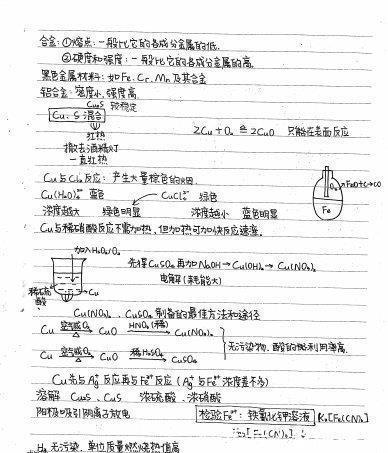 合金：①熔点：一般比它的各成分金属的低.
②硬度和强度：一般比它的各成分金属的高.
黑色金属材料：如Fe、Cr、Mn及其合金
铝合金：密度小、强度高.
Cu₂S 较稳定
Cu、S混合
红热
撤去酒精灯
一直红热
2Cu+O₂ ≙ 2CuO 只能在表面反应
Cu与Cl₂反应：产生大量棕色的烟.
Cu(H₂O)₄²⁺ 蓝色 CuCl₄²⁻ 绿色
浓度越大 绿色明显 浓度越小 蓝色明显
O₂
Fe
Cu与稀硝酸反应不需加热，但加热可加快反应速度.
加入H₂O₂/O₂
稀硫酸
Cu
先得CuSO₄再加NaOH→Cu(OH)₂→Cu(NO₃)₂
电解(耗能大)
Cu(NO₃)₂、CuSO₄制备的最佳方法和途径
Cu 空气或O₂ △ CuO HNO₃(稀) Cu(NO₃)₂
Cu 空气或O₂ △ CuO 稀H₂SO₄ CuSO₄
无污染物、酸的利用率高.
Cu先与Ag⁺反应再与Fe³⁺反应(Ag⁺与Fe³⁺浓度差不多)
溶解 Cu₂S、CuS 浓硫酸、浓硝酸
阳极吸引阴离子放电
检验Fe²⁺：铁氰化钾溶液 K₃[Fe(CN)₆]
H₂ 无污染、单位质量燃烧热值高